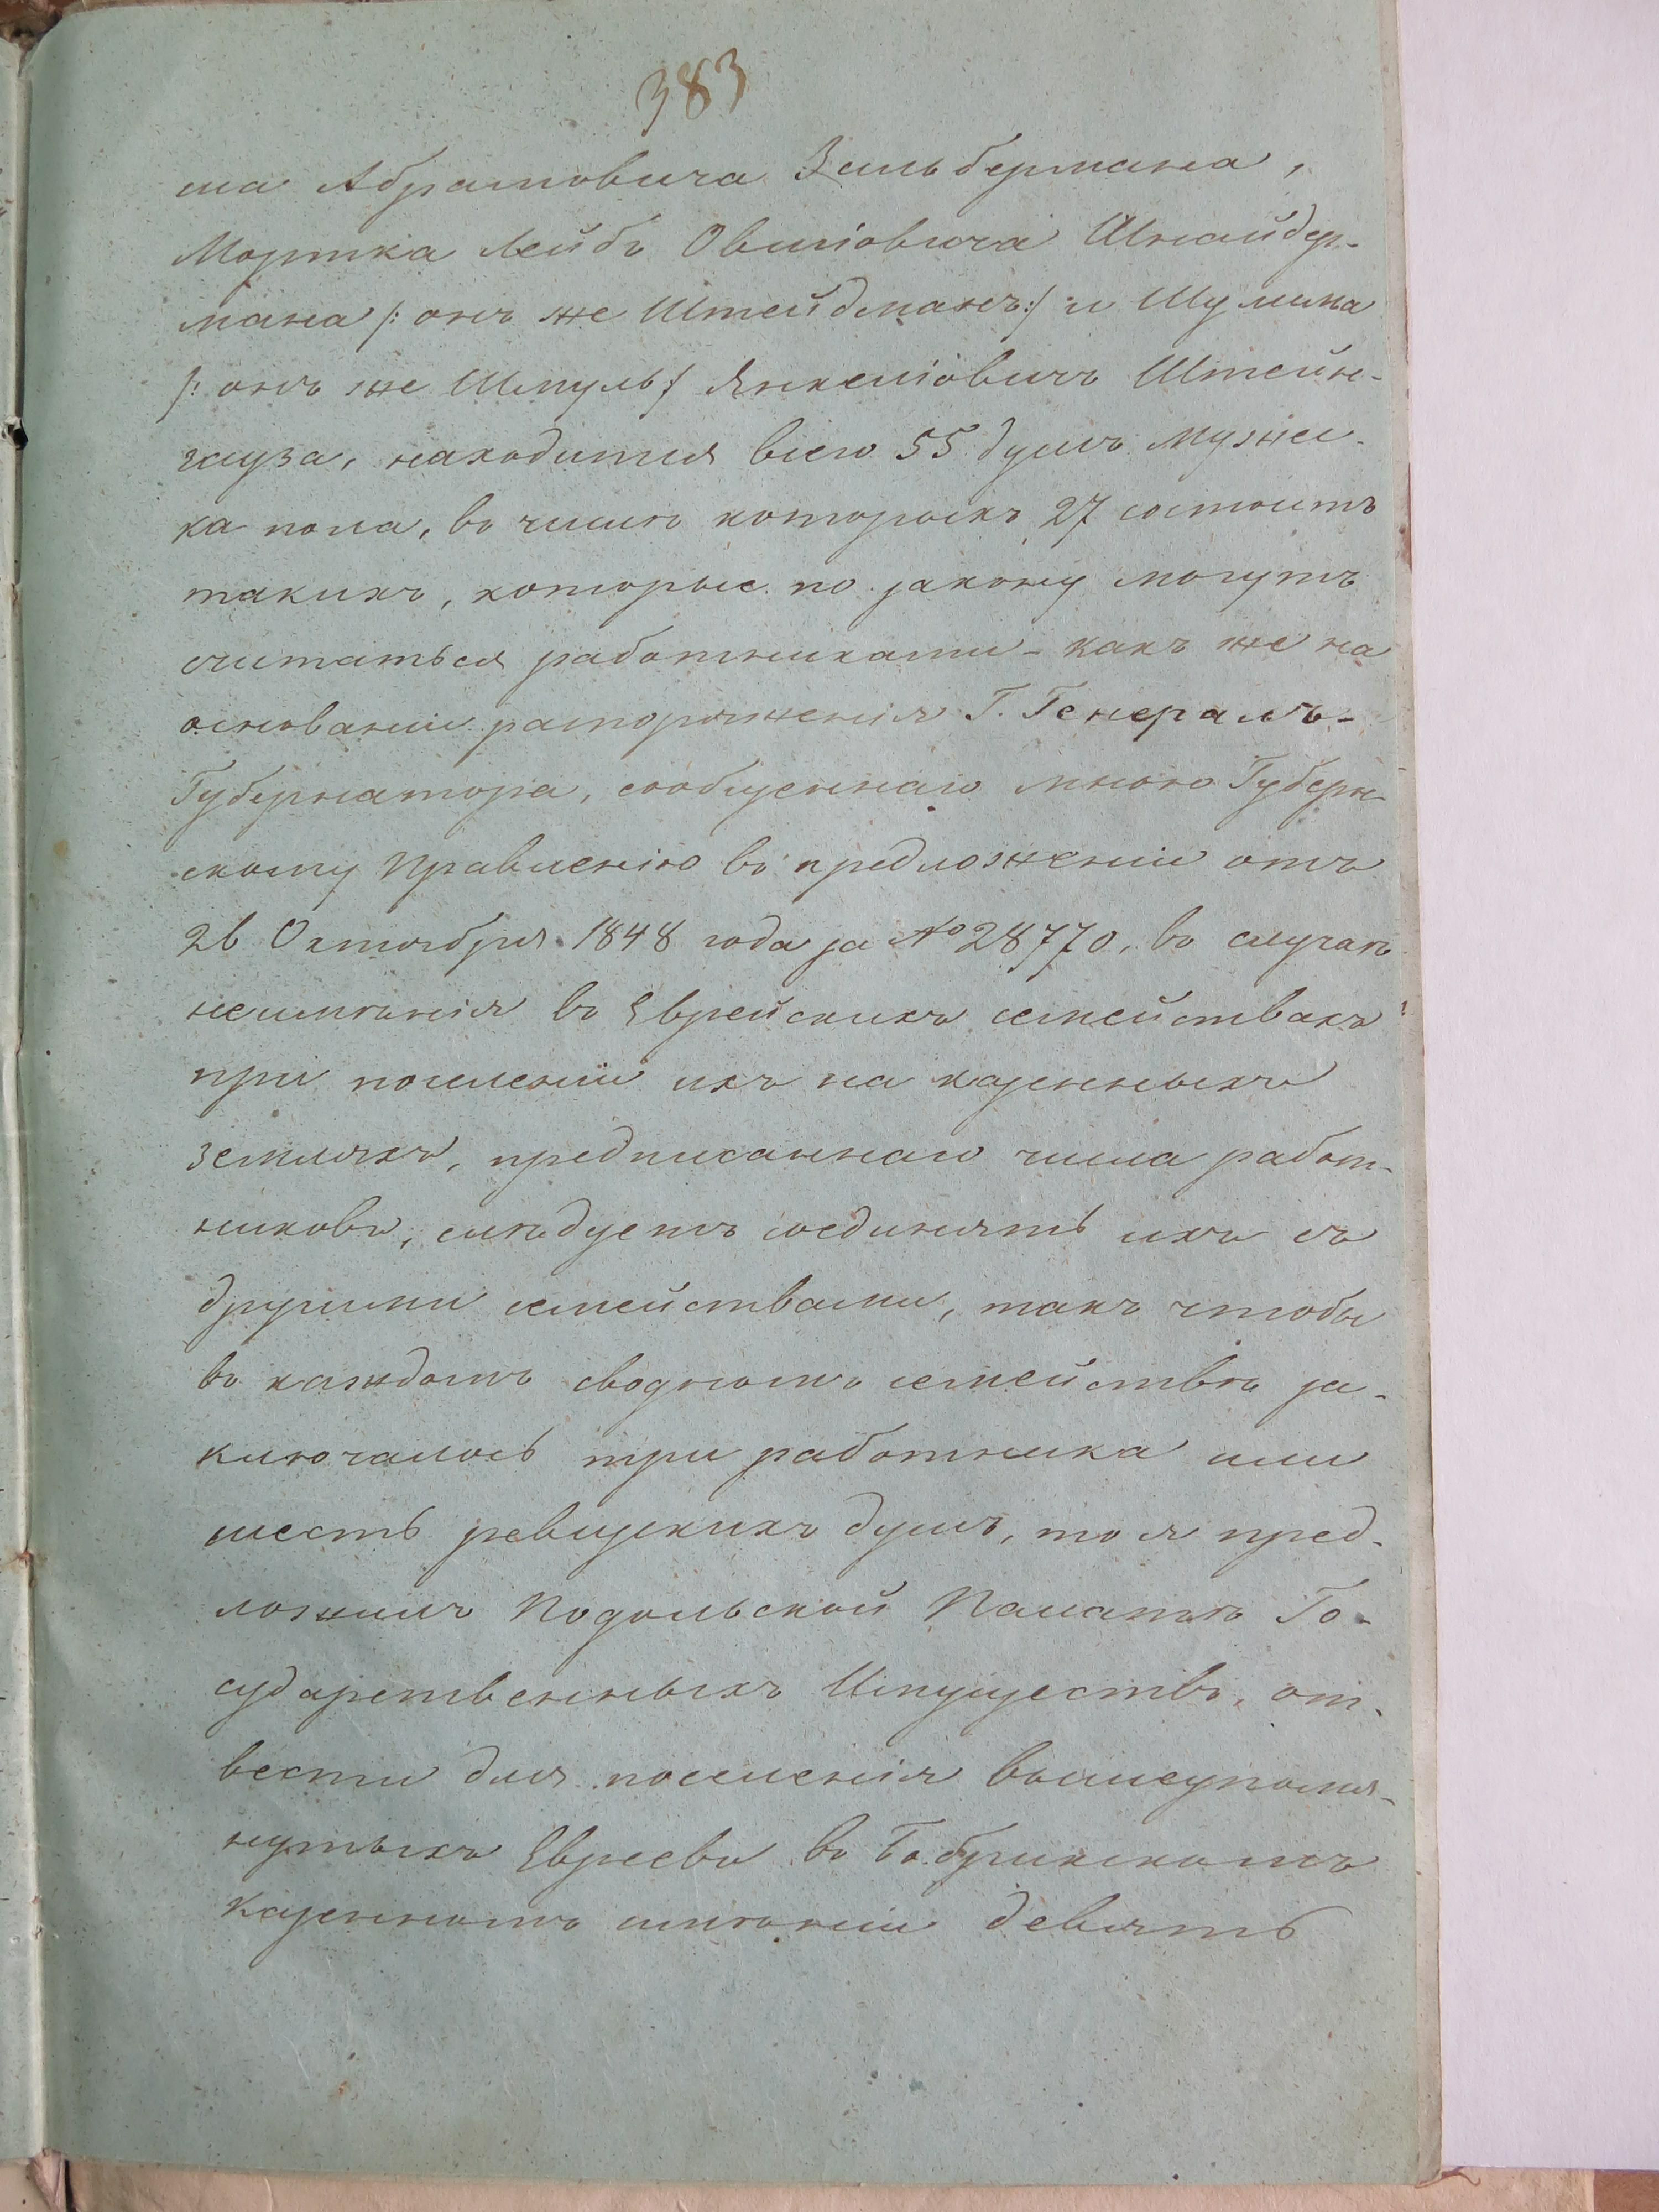 383
ма Абрамовича Зильбермана,
Мортка Лейбъ Овшіовича Шнайдер-
мана /: онъ же Штейдманъ:/ и Шулима
/: онъ же Шмуль:/ Янкеліовичъ Штейн-
гауза, находится всего 55 душъ мужес-
ка пола, въ числѣ которыхъ 27 состоитъ
такихъ, которые по закону могутъ
считаться работниками - какъ же на
основаніи распоряженія Г. Генералъ-
Губернатора, сообщеннаго мною Губерн-
скому Правленію въ предложеніи отъ
26 Октября 1848 года за № 28770, въ случаѣ
неимѣнія въ Еврейскихъ семействахъ
при поселеніи ихъ на казенныхъ
земляхъ, предписаннаго числа работ-
никовъ, слѣдуетъ соединять ихъ съ
другими семействами, такъ чтобы
въ каждомъ сводномъ семействѣ за-
ключалось три работника или
шесть ревизскихъ душъ, то я пред-
ложилъ Подольской Палатѣ Го-
сударственныхъ Имуществъ, от-
вести для поселенія вышеупомя-
нутыхъ Евреевъ въ Бобрикскомъ
казенномъ имѣніи девять